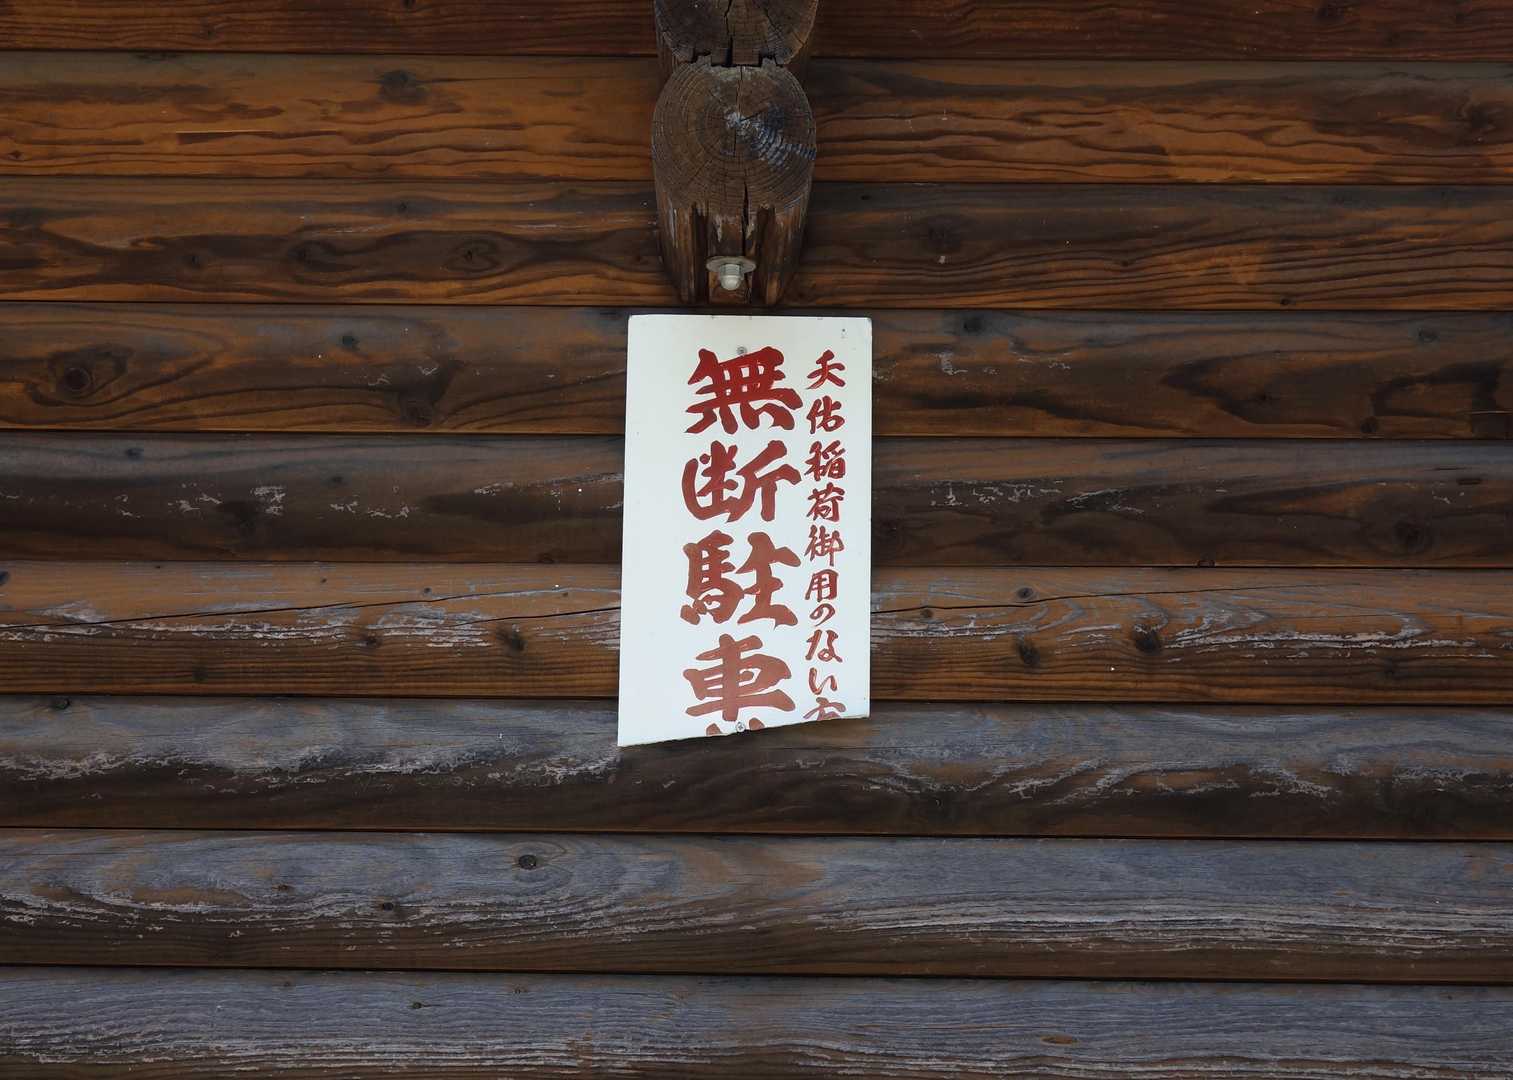 天佑稲荷御用のない方
無断駐車